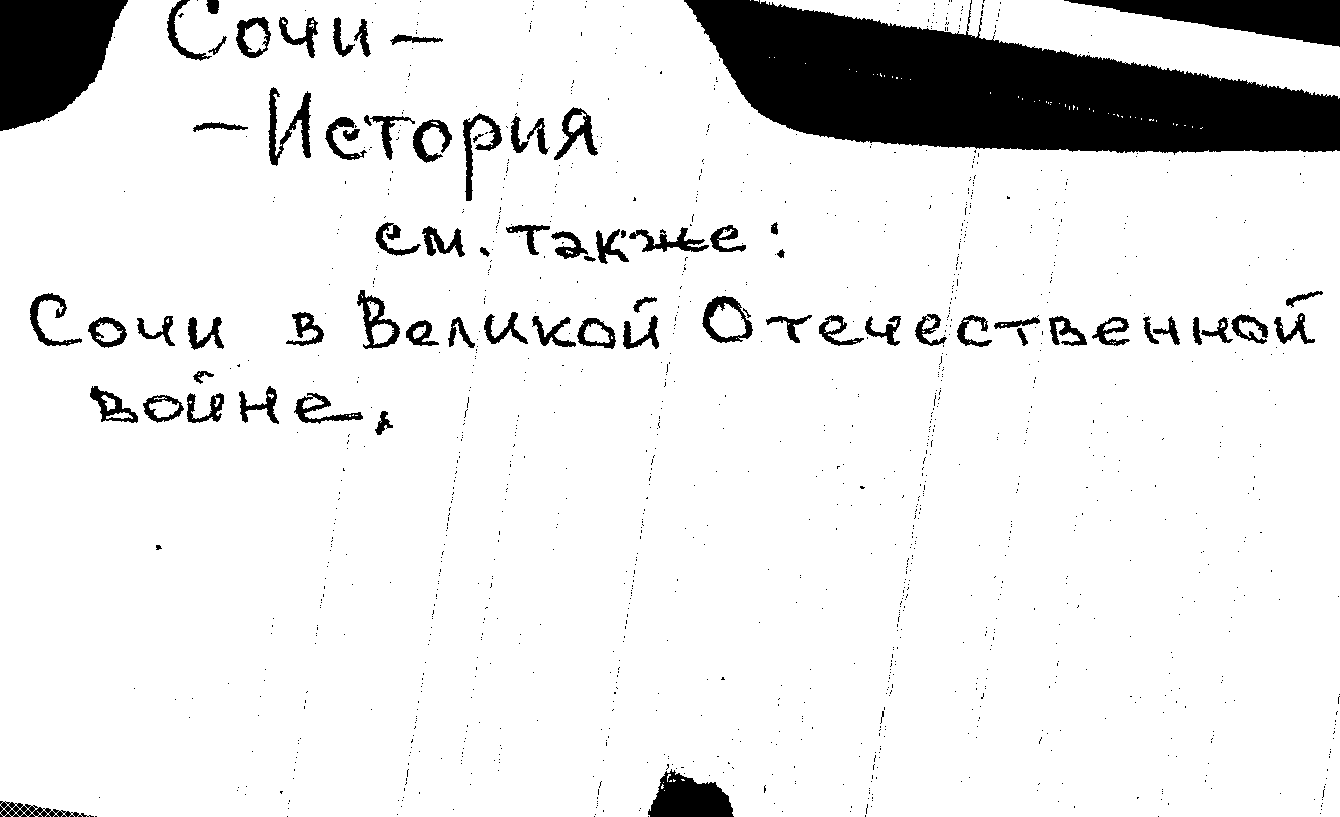 Сочи –
– История
см. также:
Сочи в Великой Отечественной
войне.